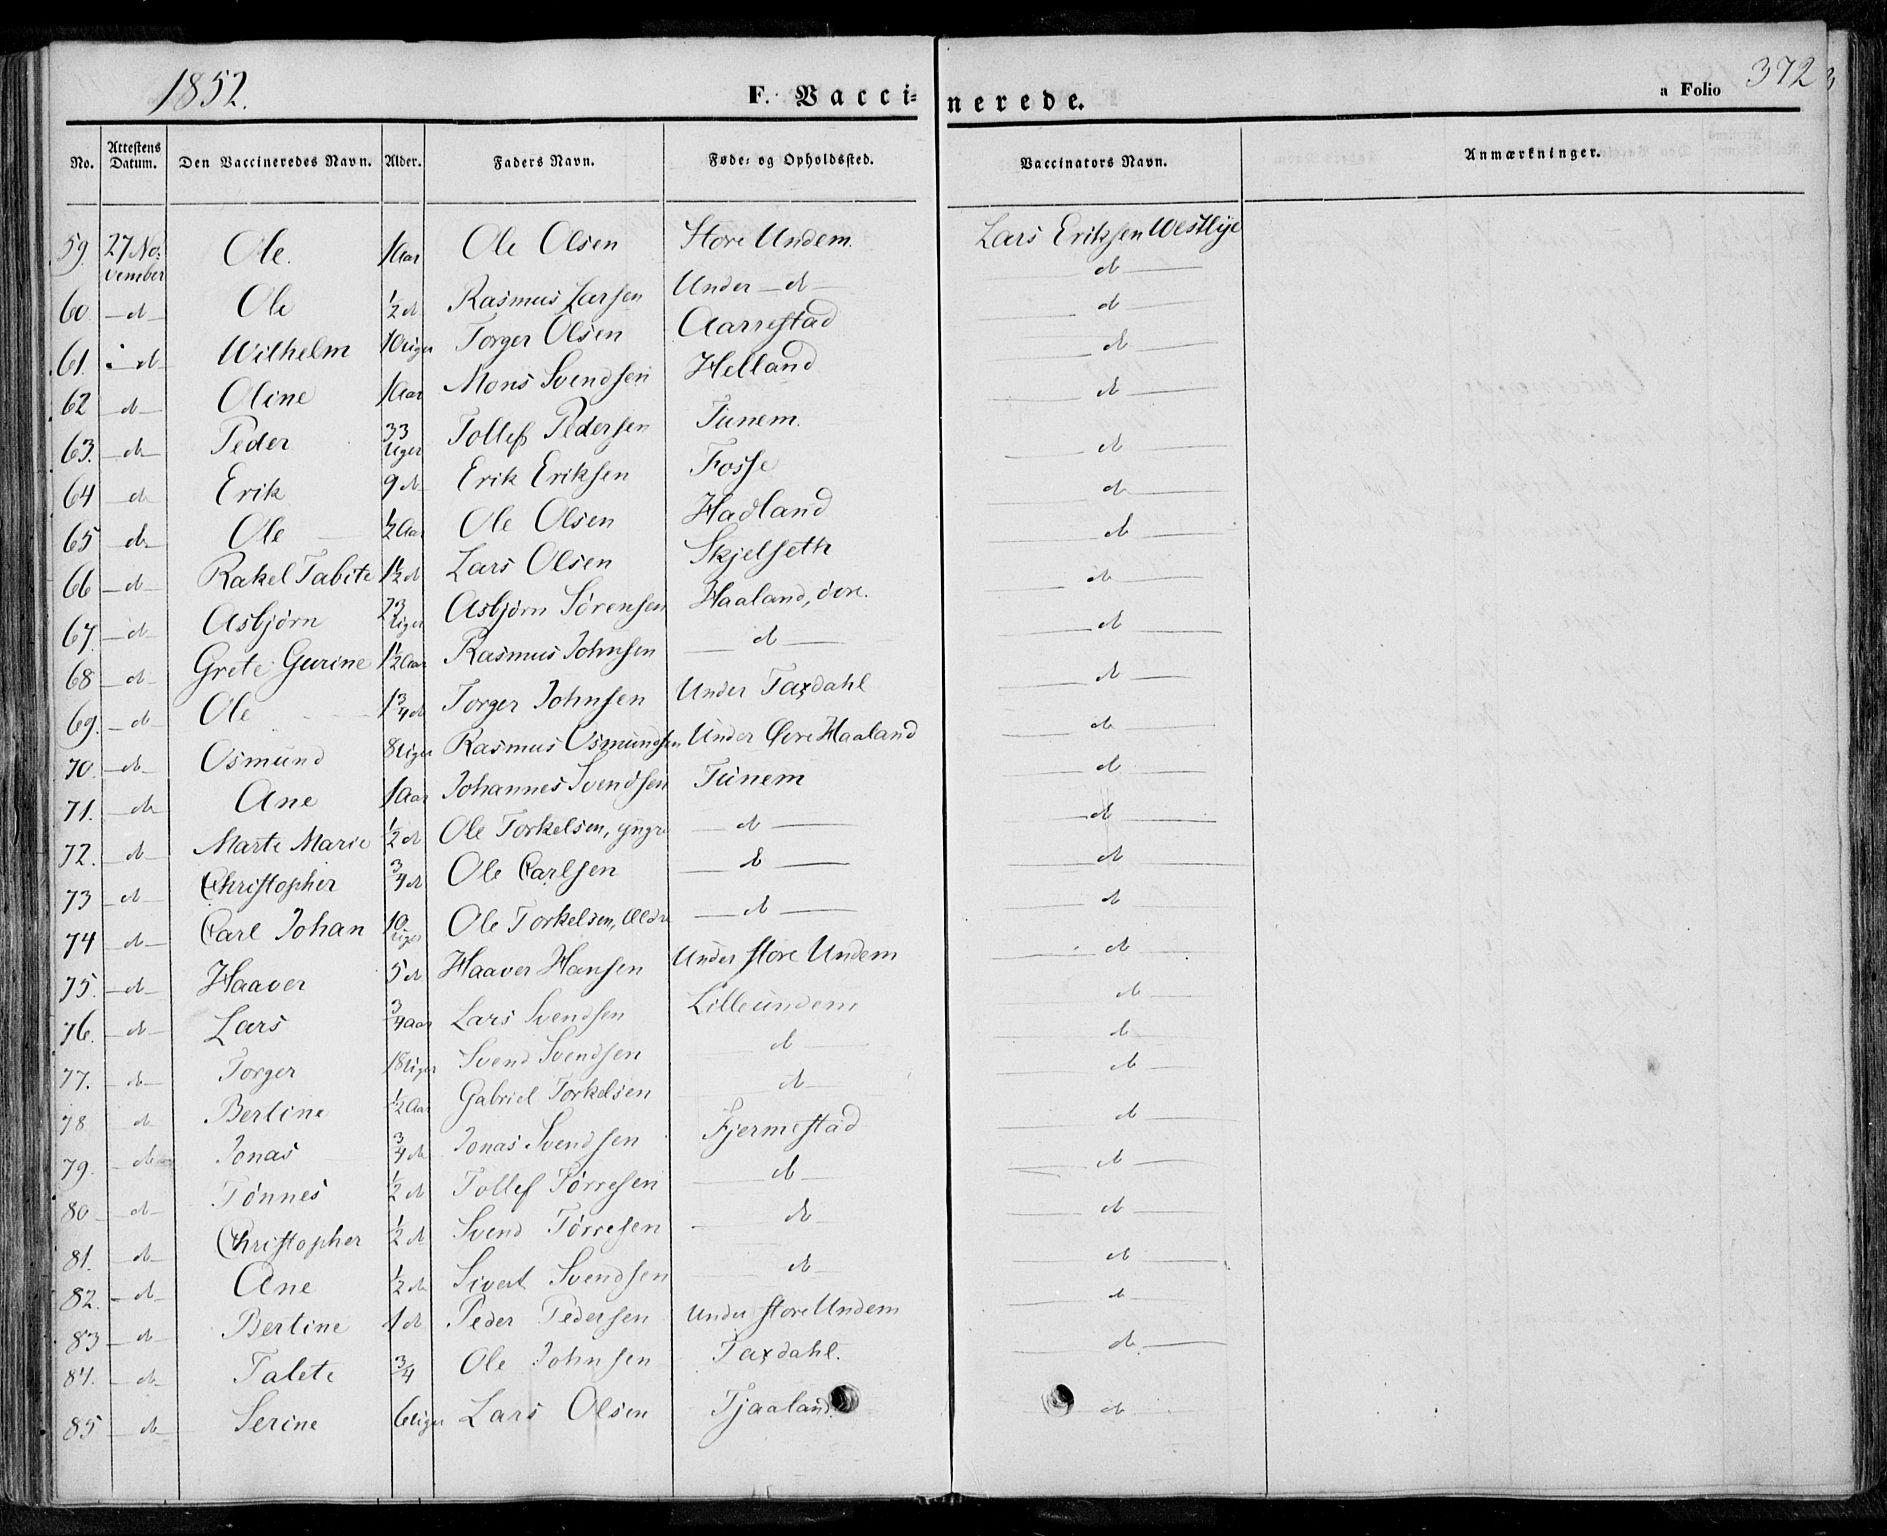 1852.
F. Vacci=
nerede.
a Folio 372
No. Attestens Datum. Den Vaccineredes Navn. Alder. Faders Navn. Føde= og Opholdssted. Vaccinators Navn. Anmærkninger.
59. 27 November Ole. 1 Aar Ole Olsen Store Undem. Lars Eriksen Westlye
60. d Ole 1/2 d Rasmus Larsen Under d d
61. d Wilhelm 10 Uger Torger Olsen Aarrestad d
62 d Oline 1 Aar Mons Svendsen Helland d
63. d Peder 33 Uger Tollef Pedersen Tunem. d
64 d Erik 9 d Erik Eriksen Fosse d
65 d Ole 1/2 Aar Ole Olsen Hadland d
66 d Rakel Tabite 1 1/2 d Lars Olsen Skjelseth d
67. d Asbjørn 23 Uger Asbjørn Sørensen Haaland, øvre. d
68 d Grete Gurine 1 1/2 Aar Rasmus Johnsen d d
69. d Ole 1 3/4 d Torger Johnsen Under Taxdahl d
70. d Osmund 8 Uger Rasmus Osmundsen Under Øvre Haaland d
71. d Ane 1 Aar Johannes Svendsen Tunem d
72. d Marte Marie 1/2 d Ole Torkelsen, yngre d d
73 d Christopher 3/4 d Ole Carlsen d d
74 d Carl Johan 10 Uger Ole Torkelsen, Ældre d d
75. d Haaver 5 d Haaver Hansen Under store Undem d
76. d Lars 3/4 Aar Lars Svendsen Lilleundem d
77. d Torger 18 Uger Svend Svendsen d d
78 d Bertine 1/2 Aar Gabriel Torkelsen d d
79. d Jonas 3/4 d Jonas Svendsen Fjermestad d
80 d Tønnes 1/2 d Tollef Tørresen d d
81. d Christopher 1/2 d Svend Tørresen d d
82. d Ane 1/2 d Sivert Svendsen d d
83 d Bertine 1 d Peder Pedersen Under store Undem d
84. d Talete 3/4 Ole Johnsen Taxdahl. d
85 d Serine 6 Uger Lars Olsen Tjaaland. d